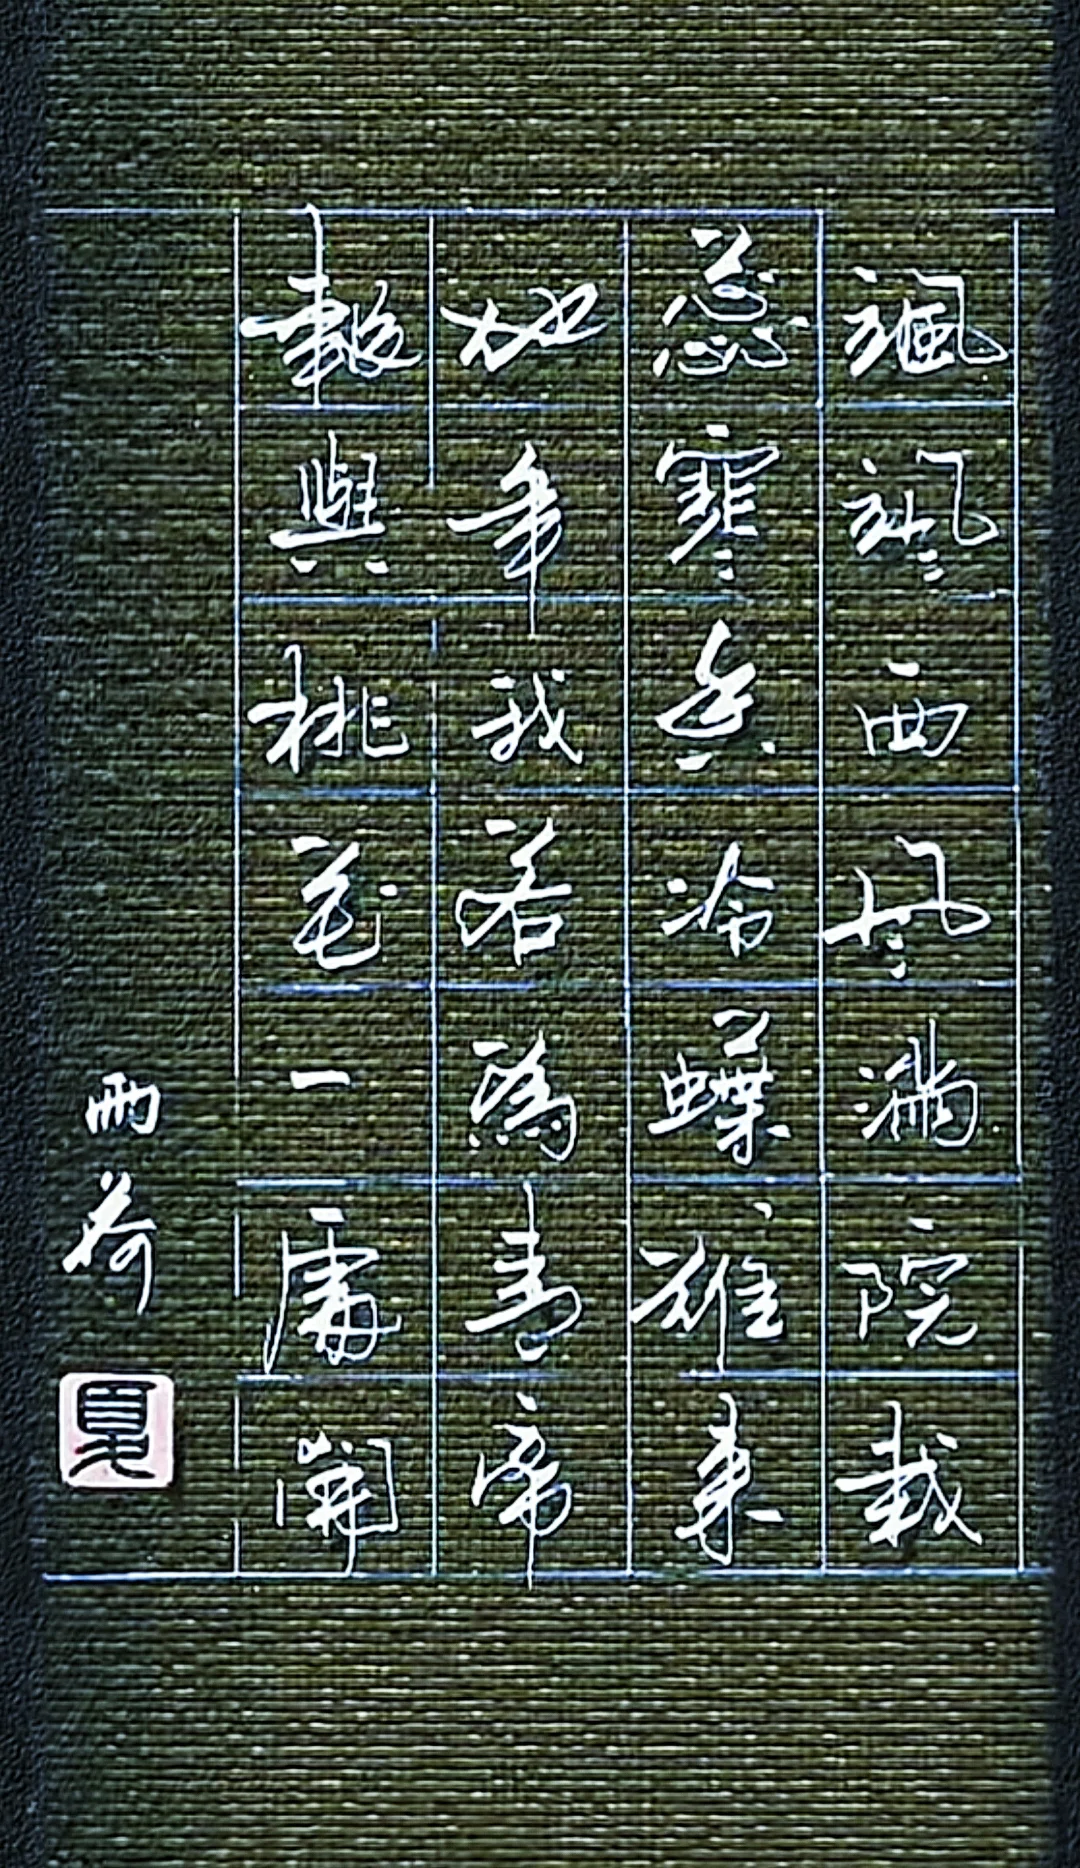 颯颯西風滿院栽
蕊寒香冷蝶難來
他年我若為青帝
報與桃花一處開
雨荷
夏